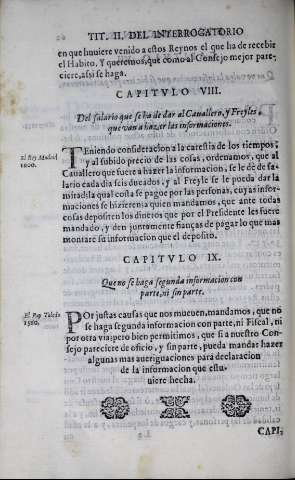 TIT. II. DEL INTERROGATORIO
en que huuiere venido a estos Reynos el que ha de recebir
el Habito. Y queremos, que como al Consejo mejor pare-
ciere, assi se haga.
CAPITVLO VIII.
Del salario que se ha de dar al Cauallero, y Freyles,
que van a hazer las informaciones.
El Rey Madrid
1600.
TEniendo consideracion a la carestia de los tiempos,
y al subido precio de las cosas, ordenamos, que al
Cauallero que fuere a hazer la informacion, se le dè de sa-
lario cada dia seis ducados, y al Freyle se le pueda dar la
mitad: la qual costa se pague por las personas, cuyas infor-
maciones se hizieren: a quien mandamos, que ante todas
cosas depositen los dineros que por el Presidente les fuere
mandado, y den juntamente fianças de pagar lo que mas
montare su informacion que el deposito.
CAPITVLO IX.
Que no se haga segunda informacion con
parte, ni sin parte.
El Rey Toledo
1560.
POr justas causas que nos mueuen, mandamos, que no
se haga segunda informacion con parte, ni Fiscal, ni
por otra via: pero bien permitimos, que si a nuestro Con-
sejo pareciere de oficio, y sin parte, pueda mandar hazer
algunas mas aueriguaciones para declaracion
de la informacion que estu-
uiere hecha.
CAPI-